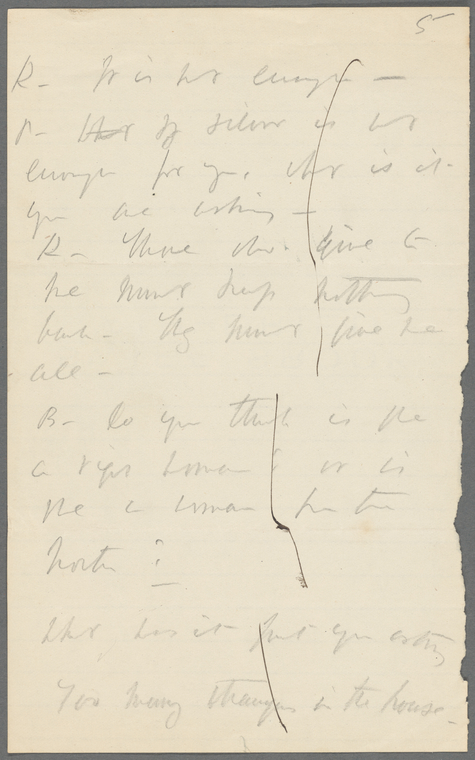 5
R- It is not enough -
P- What If silver is not
enough for you, what is it
you are asking -
R- Those who give to
me must keep nothing
back - They must give me
all -
B- Do you think is she
a right woman? or is
she a woman from the
North?
What has it put you asking
Too many strangers in the house -